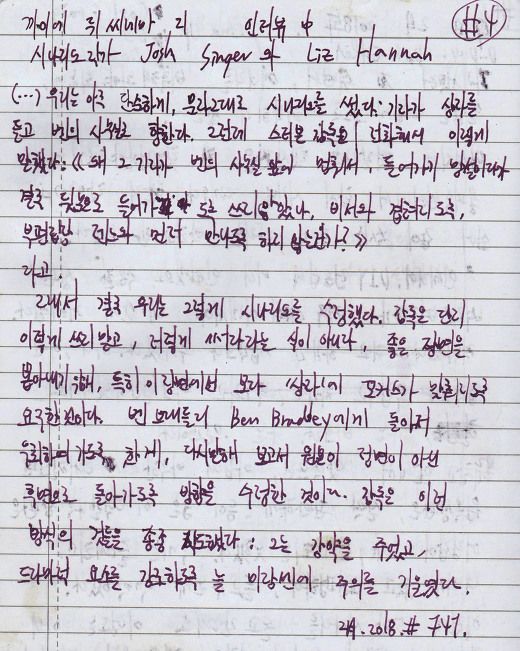 #4
까이에 뒤 씨네마의 인터뷰 中
시나리오 작가 Josh Singer 와 Liz Hannah
(...) 우리는 아주 단순하게, 문자 그대로 시나리오를 썼다: 기자가 상자를
들고 벤의 사무실로 향한다. 그런데 스티븐 감독은 전화해서 이렇게
말했다: 《왜 그 기자가 벤의 사무실 앞에 멈춰서, 들어가기 망설이다가
결국 뒷문으로 들어가 쓰지 않았나, 비서와 겹쳐지도록,
부편집장 먼저 만나도록 하지 않는건가?》
라고.
그래서 결국 우리는 그렇게 시나리오를 수정했다. 감독은 단지
이렇게 쓰지 말고, 저렇게 써라라는 식이 아니다, 좋은 장면을
뽑아내기 위해, 특히 이 장면에선 보다 상자에 포커스가 맞춰지도록
요구한 것이다. 벤 브래들리 Ben Bradley에게 돌아서
우회하여 가도록 하게, 다시 말해 보고서 원본이 정면이 아닌
후면으로 돌아가도록 방향을 수정한 것이다. 감독은 이런
방식의 것들을 종종 시도했다: 그는 강약을 주었고,
드라마적 요소를 강조하도록 늘 미장센에 주의를 기울였다.
2018. # 747.